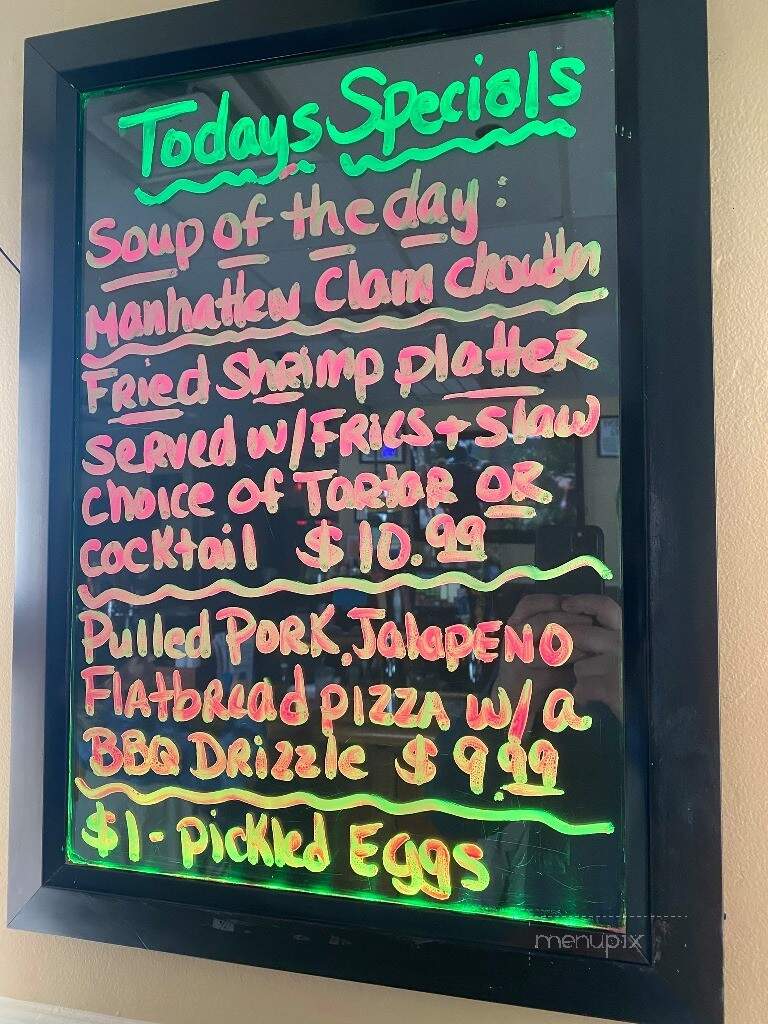 Todays Specials
Soup of the day:
Manhatten Clam Chowder
Fried Shrimp platter
Served w/FRIES + Slaw
choice of TaRtaR OR
cocktail $10.99
Pulled PORK, JalapENO
Flatbread pizza w/a
BBQ DRizzle $9.99
$1 - pickled Eggs
menupix